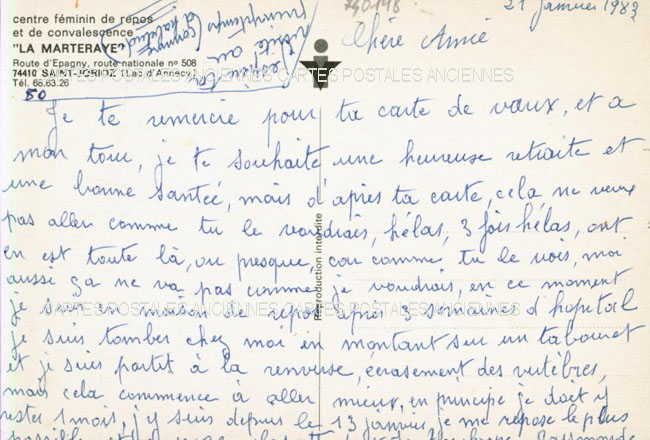 centre féminin de repos
et de convalescence
"LA MARTERAYE"
Route d'Epagny, route nationale nº 508
74410 SAINT-JORIOZ (Lac d'Annecy)
Tél. 68.63.26
50
740118
21 Janvier 1983
visite au
printemps
comme
Chère Amie
CARTES POSTALES ANCIENNES CARTES POSTALES ANCIENNES
Je te remercie pour ta carte de vœux, et a
mon tour, je te souhaite une heureuse retraite et
une bonne santeé, mais d'après ta carte, cela ne veux
pas aller comme tu le voudrais, hélas, 3 fois hélas, ont
en est toute là, ou presque, car comme tu le vois, moi
aussi ça ne va pas comme je voudrais, en ce moment
je suis en maison de repos après 3 semaines d'hopital
je suis tomber chez moi en montant sur un tabouret
et je suis partit à la renverse, écrasement des vertèbres,
mais cela commence à aller mieux, en principe je doit y
rester 1 mois, j'y suis depuis le 13 janvier je me repose le plus
possible et
Reproduction interdite
CARTES POSTALES ANCIENNES CARTES POSTALES ANCIENNES